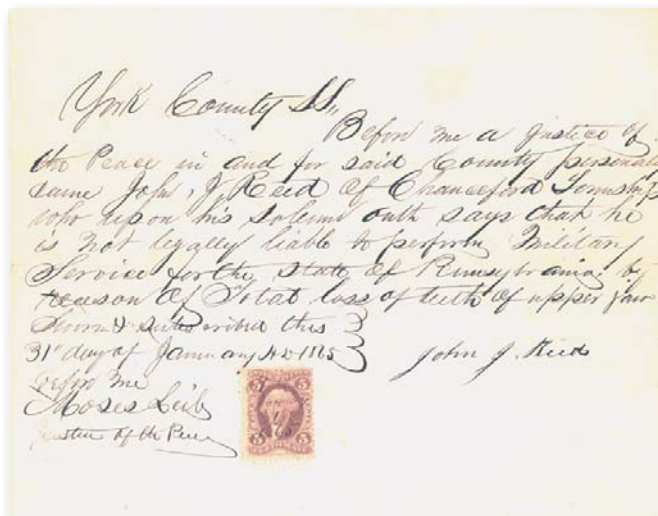 York County SS,,
Before me a Justice of
the Peace in and for said County personally
came John, J, Reed of Chanceford Township
who upon his solemn outh says that he
is not legally liable to perform Military
Service for the State of Pennsylvania by
reason of Total loss of teeth of upper jaw
Sworn & subscribed this
31st day of January AD 1865
John J. Reed
before me
Moses Leib
Justice of the Peace
5 5
5 5